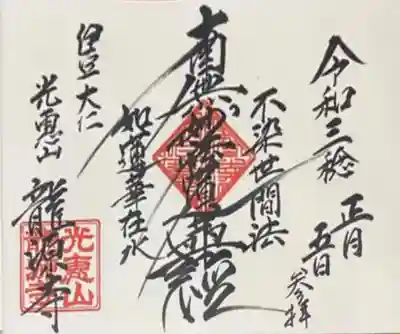 令和三稔
正月
五日
参拝
不染世間法
南無妙法蓮華経
如蓮華在水
伊豆大仁
光恵山
龍源寺
光恵山
龍源寺